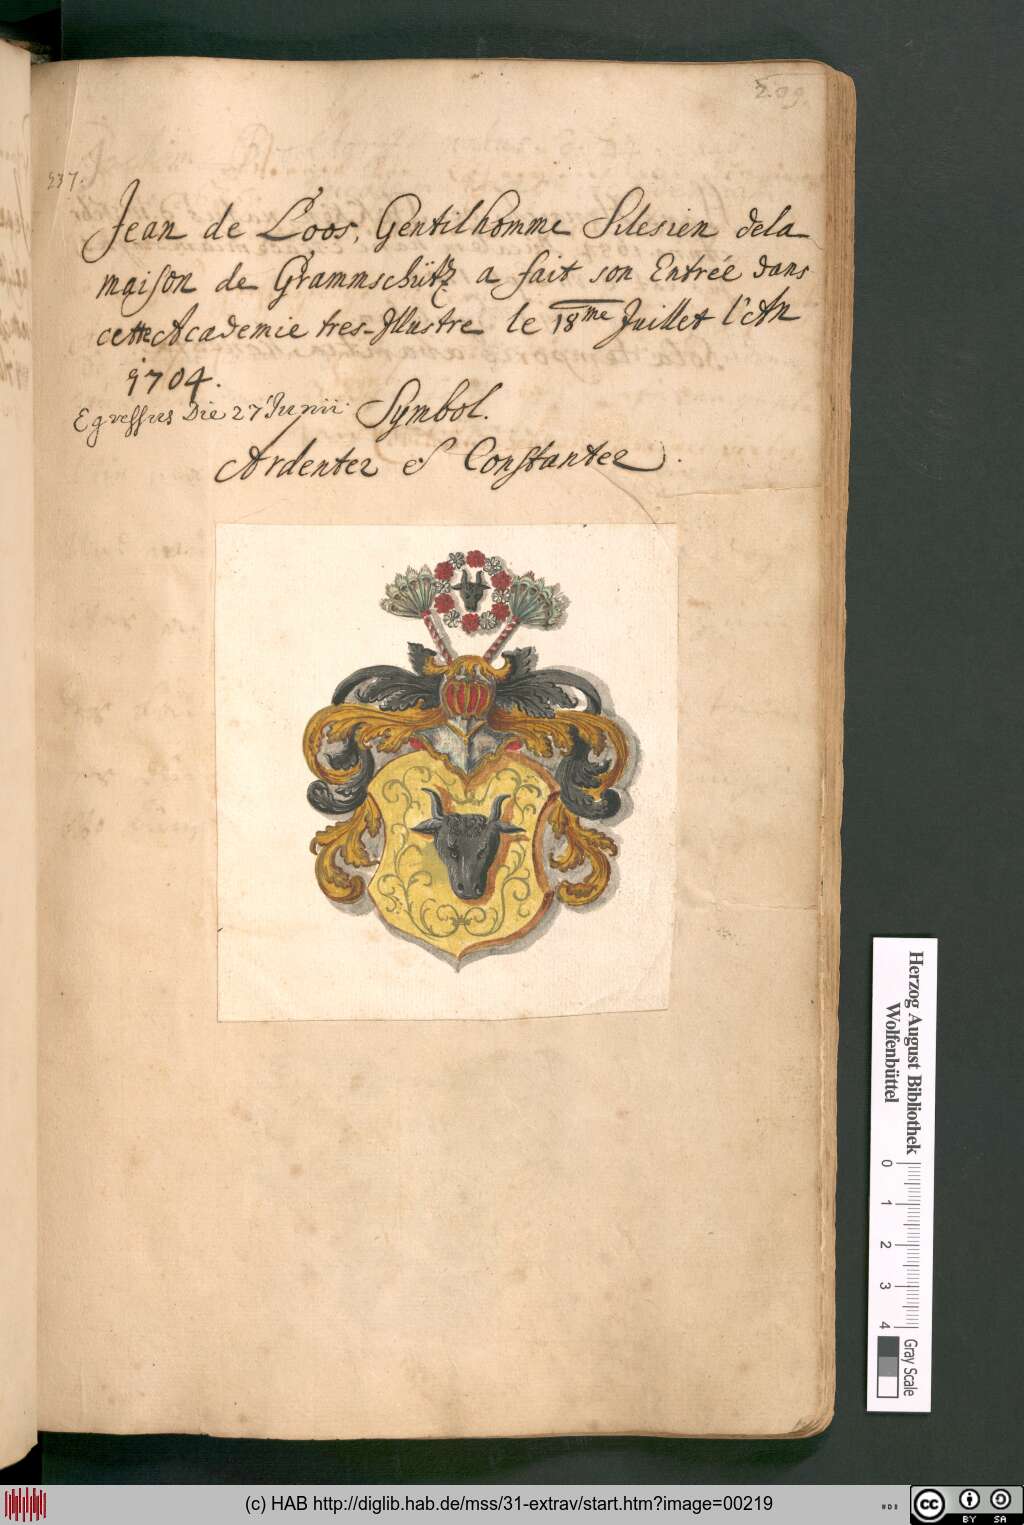 209.
237.
Jean de Loos, Gentilhomme Silesien de la
maison de Grammschütz a fait son Entrée dans
cette Academie tres-Illustre le 18me Juillet l'An
1704.
Egressus Die 27 Junii. Symbol.
Ardenter & Constanter.
Herzog August Bibliothek
Wolfenbüttel
0 1 2 3 4
Gray Scale
(c) HAB http://diglib.hab.de/mss/31-extrav/start.htm?image=00219
cc BY SA